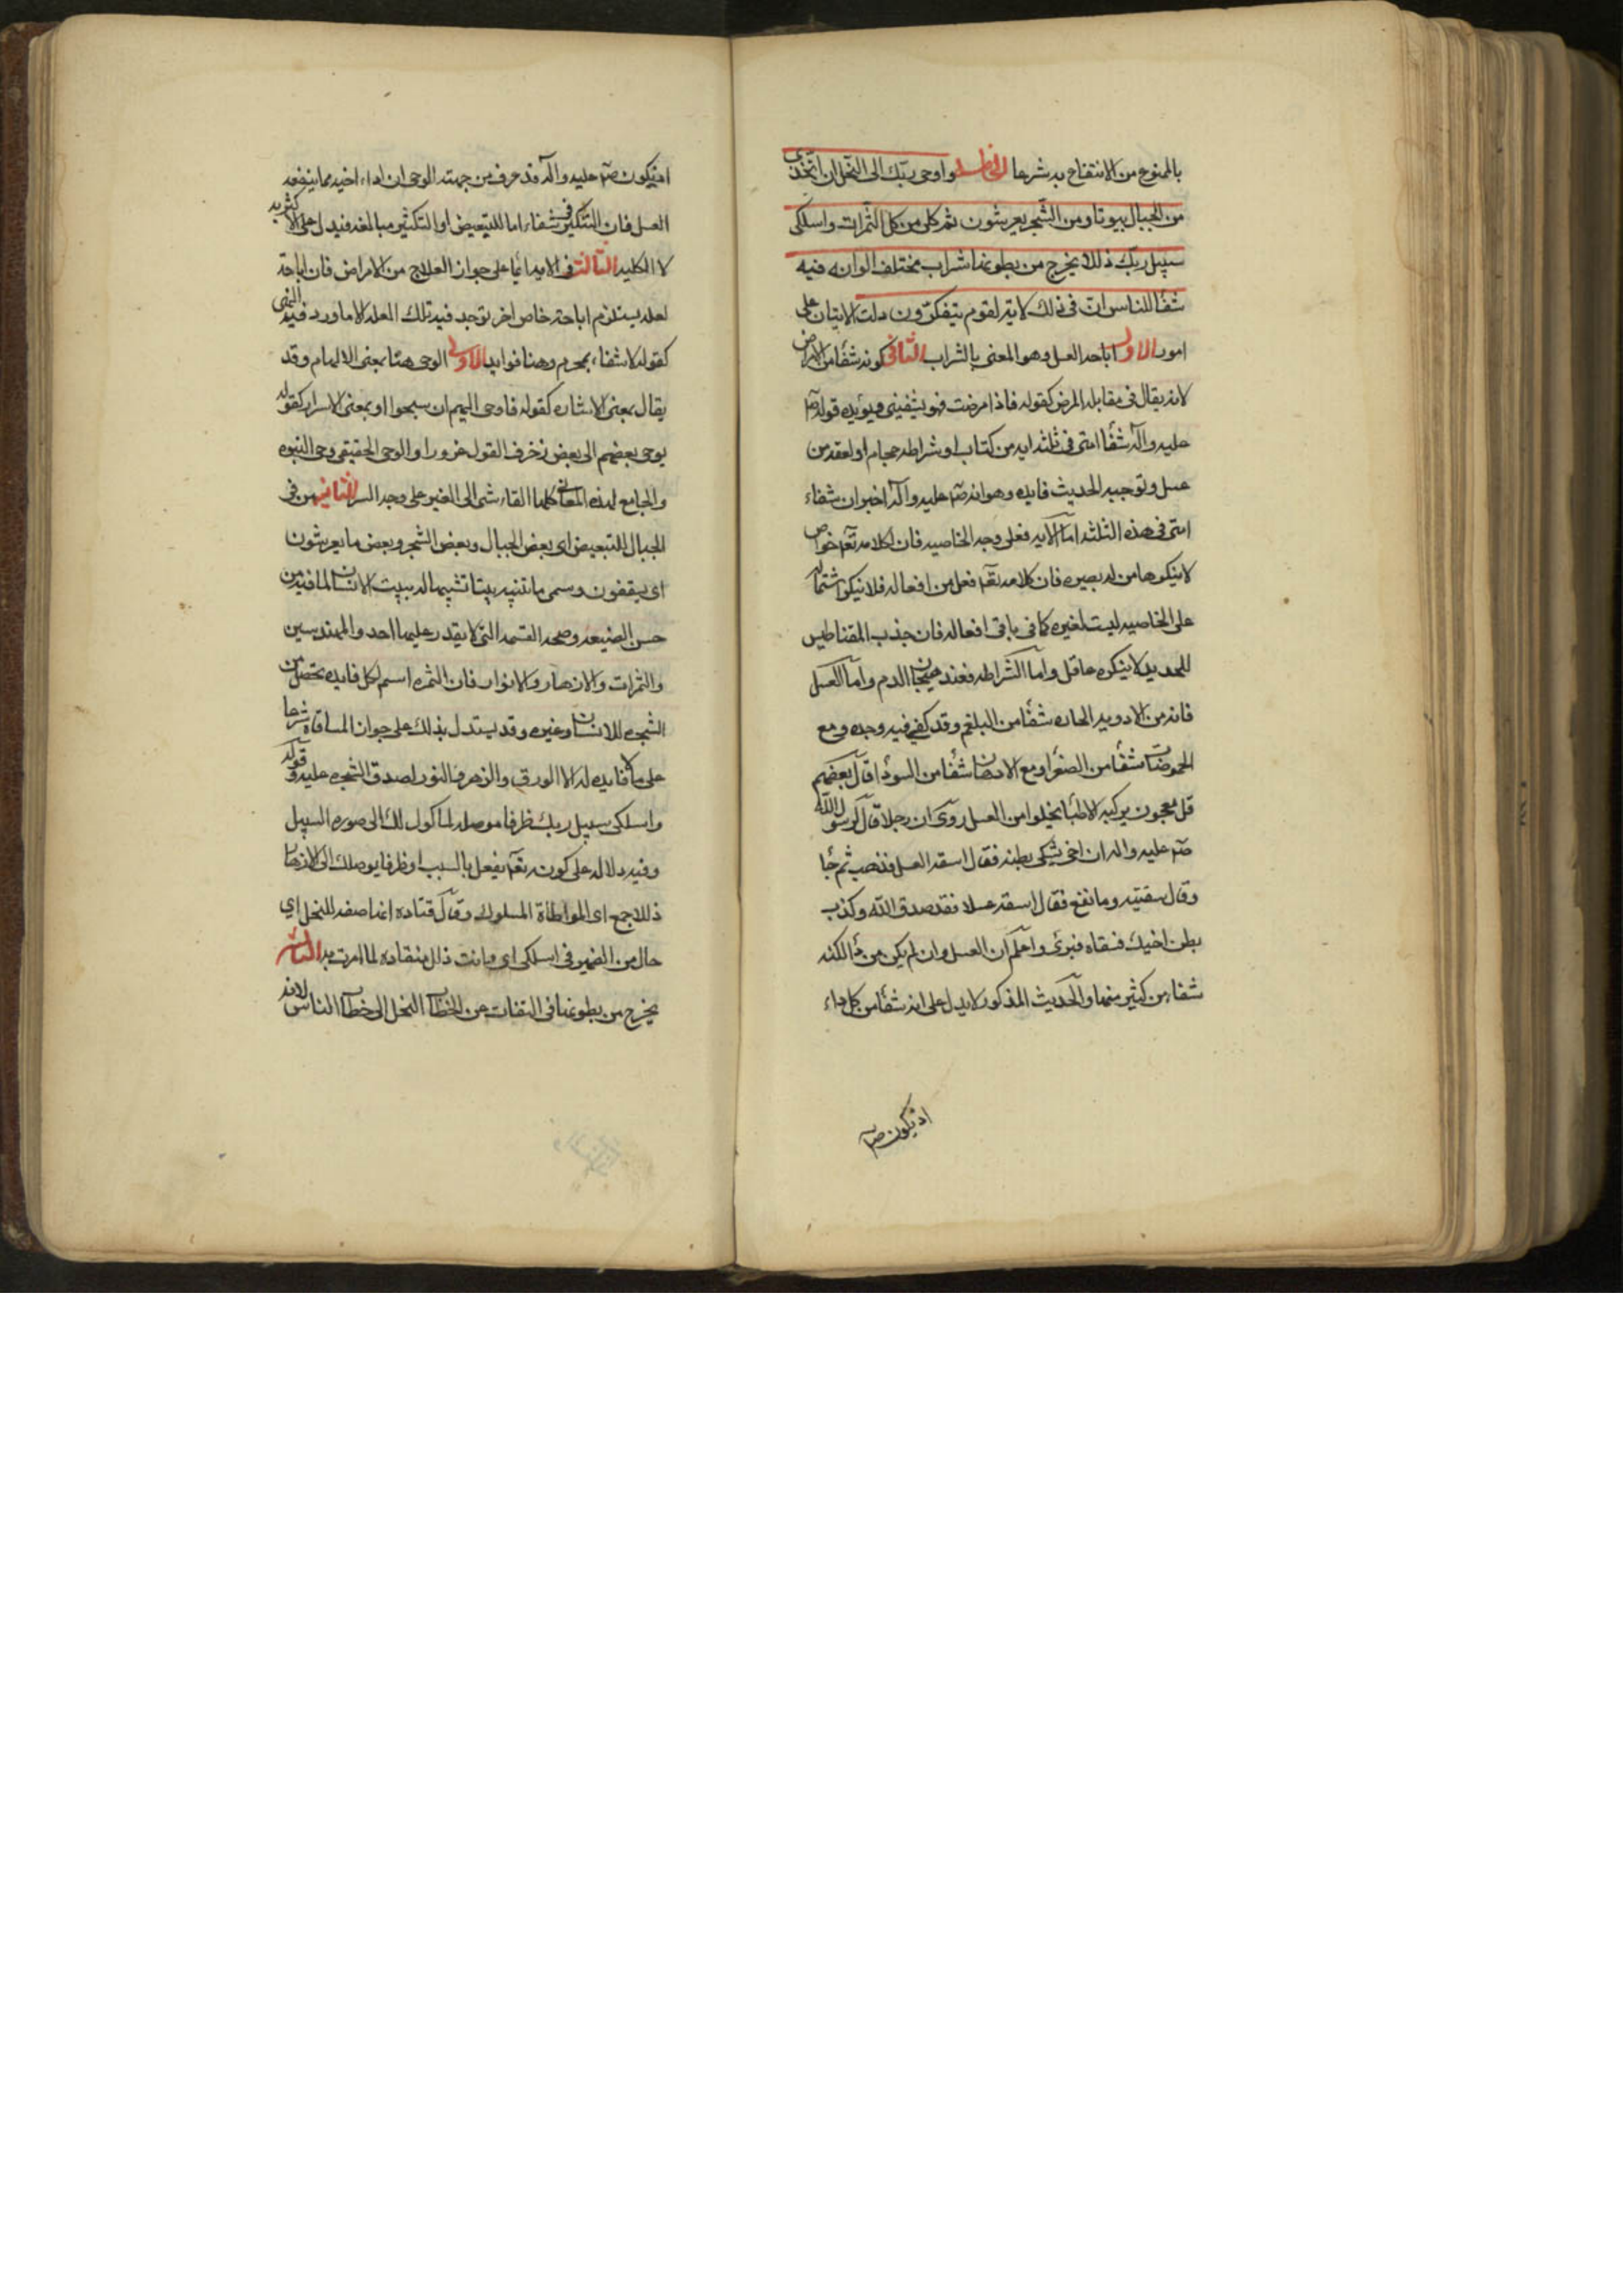 بالممنوع من الانتفاع به شرعا الخامسه واوحى ربّك الى النّحل ان اتّخذى
من الجبال بيوتا ومن الشّجر يعرشون ثم كلى من كل الثّمرات واسلكى
سبيل ربّك ذللا يخرج من بطونها شراب مختلف الوانه فيه
شفآ للناس انّ فى ذلك لاية لقوم يتفكّرون دلت الايتان على
امور الاول اباحه العسل وهو المعنى بالشراب الثّانى كونه شفآ من الامراض
لانه يقال فى مقابله المرض كقوله فاذا مرضت فهو يشفينى ويؤيده قوله صلم
عليه وآله شفآ امتى فى ثلثه ايه من كتاب او شراطه حجام او لعقه من
عسل وتوجيه الحديث فايده وهو انه صلم عليه وآله اخبر ان شفاء
امتى فى هذه الثلثه امّا الآيه فعلى وجه الخاصيه فان لكلامه تعم خواص
لاينكرها من له بصيره فان كلامه تعم فعل من افعاله فلا نيكر اشتماله
على الخاصيه ليست لغيره كما فى باقى افعاله فان جذب المقناطيس
للحديد لا ينكره عاقل وامّا الشراطه فعند هيجان الدم وامّا العسل
فانه من الادويه الحاره شفآ من البلغم وقد كفى فيه وحده ومع
الحموضات شفآ من الصفرا ومع الادهان شفآ من السودآ قال بعضهم
قل معجون يركبه الاطبآ يخلوا من العسل روى ان رجلا قال لرسول الله
صلم عليه واله ان اخى يشتكى بطنه فقال اسقه العسل فذهب ثم جآ
وقال سقيته وما نفع فقال اسقه عسلا فقد صدق الله وكذب
بطن اخيك فسقاه فبرئ واعلم ان العسل وان لم يكن من دآ لكنه
شفاء من كثير منها والحديث المذكور لا يدل على انه شفآ من كل داء
اذ يكون صلم
اذ يكون صلم عليه وآله قد عرف من جهته الوحى ان داء اخيه مما ينفعه
العسل فان التنكير فى شفاء اما للتبعيض او التكثير مبالغه فيدل على الاكثريه
لا الكليه الثالث فى الايه ايمآ على جواز العلاج من الامراض فان اباحة
لعله يستلزم اباحة خاص اخر توجد فيه تلك العله الا ما ورد فيه النهى
كقوله لاشفاء بمحرم وهنا فوايد الاولى الوحى هنا بمعنى الالهام وقد
يقال بمعنى الاشاره كقوله فاوحى اليهم ان سبحوا او بمعنى الاسرار كقوله
يوحى بعضهم الى بعض زخرف القول غرورا والوحى الحقيقى وحى النبوه
والجامع لهذه المعانى كلها القاء شى الى الغير على وجه السر الثانيه من فى
الجبال للتبعيض اى بعض الجبال وبعض الشجر وبعض ما يعرشون
اى يسقفون وسمى ما تبنيه بيتا تشبيها له ببيت الانسان لما فيه من
حسن الصنيعه وصحه القسمه التى لا يقدر عليها احد والمهندسين
والثمرات والازهار والانوار فان الثمره اسم لكل فايده تحصل من
الشجره للانسان وغيره وقد يستدل بذلك على جواز المساقاة شرعا
على مالا فايده له الا الورق والزهر والنور لصدق الشجره عليه وقوله
واسلكى سبيل ربك ظرفا موصله لماكول لك الى صوره السبيل
وفيه دلاله على كونه تعم يفعل بالسبب او ظرفا يوصلك الى الازهار
ذللا جمع اى المواطاة المسلوك وقال قتاده انها صفه للنحل اى
حال من الضمير فى اسلكى اى وانت ذلل منقاده لما امرت به الثالثه
يخرج من بطونها فى التفات عن خطاب النحل الى خطاب الناس لانه